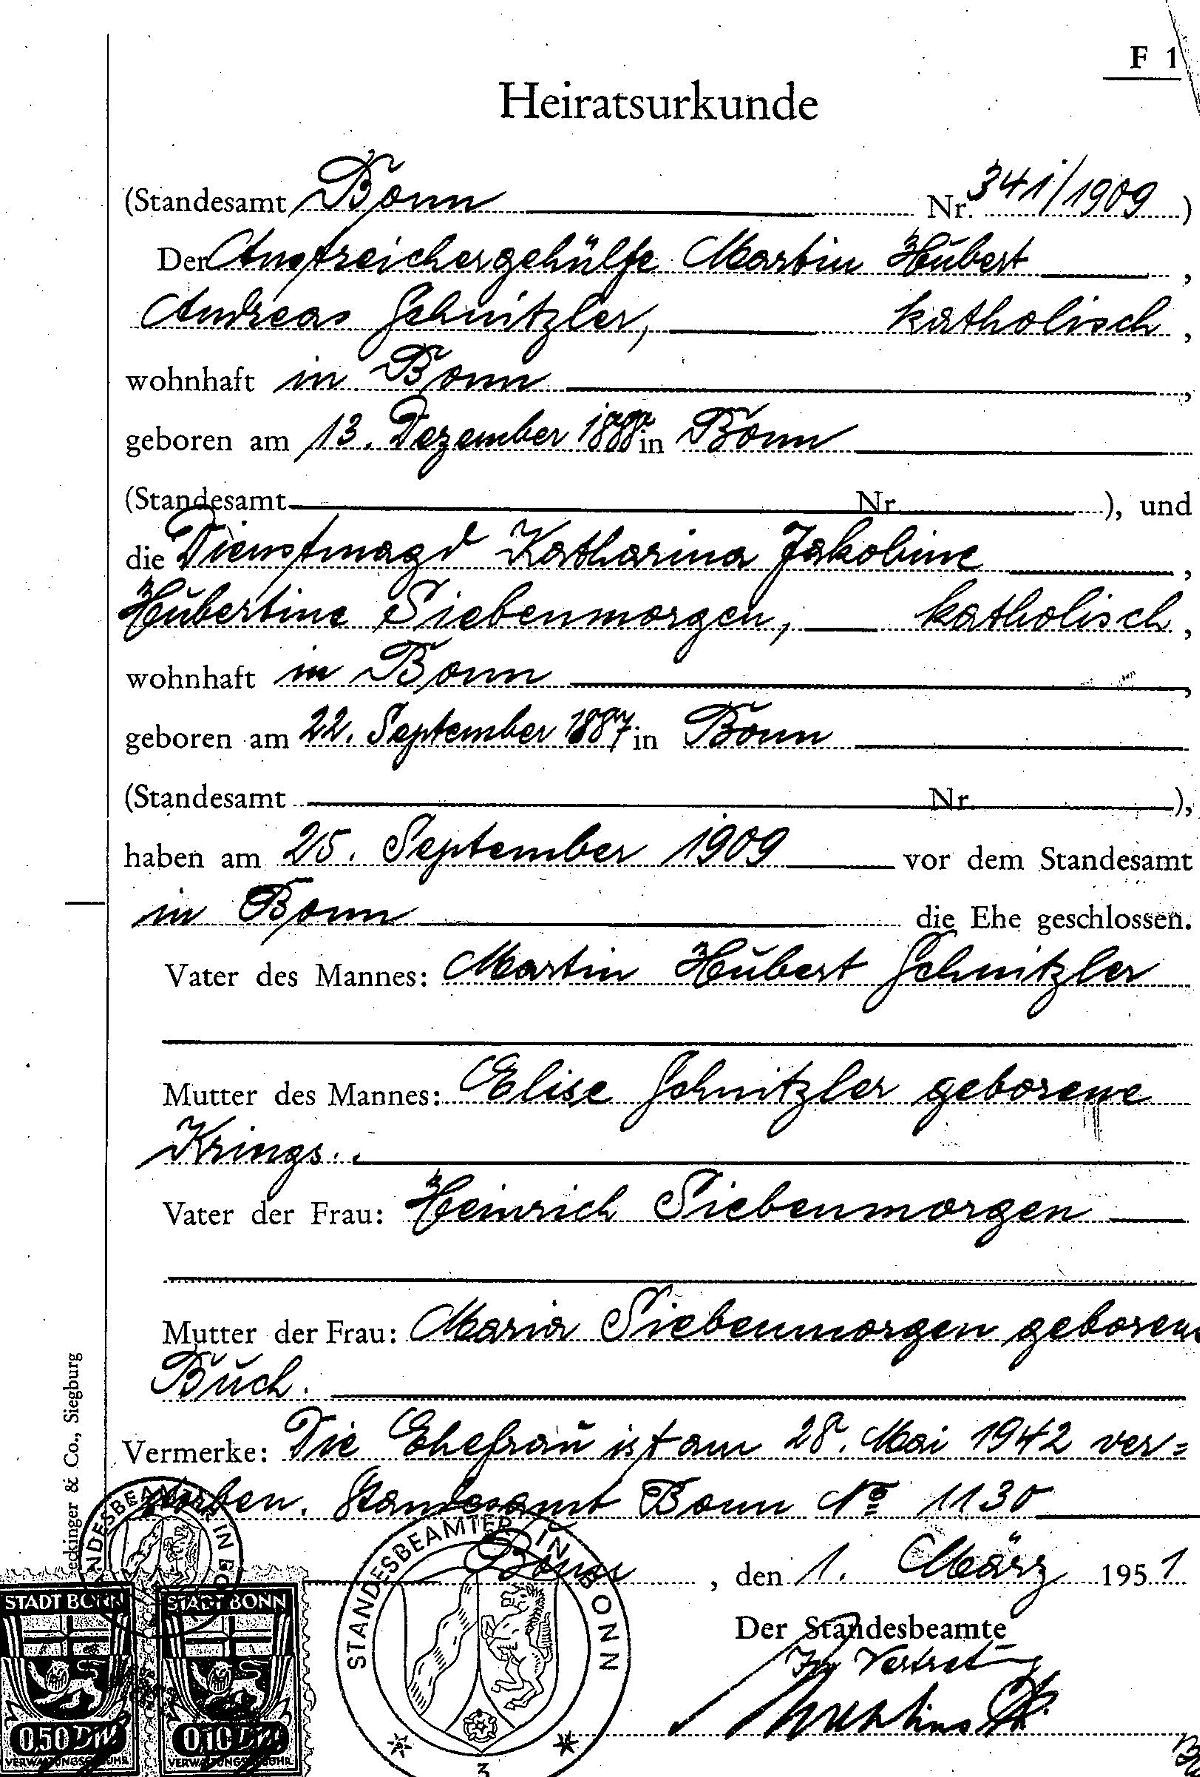 F 1
Heiratsurkunde
(Standesamt Bonn Nr. 341/1909)
Der Anstreichergehülfe Martin Hubert,
Andreas Schnitzler, katholisch,
wohnhaft in Bonn,
geboren am 13. Dezember 1888 in Bonn
(Standesamt Nr. ), und
die Dienstmagd Katharina Jakobine,
Hubertine Siebenmorgen, katholisch,
wohnhaft in Bonn,
geboren am 22. September 1887 in Bonn
(Standesamt Nr. ),
haben am 25. September 1909 vor dem Standesamt
in Bonn die Ehe geschlossen.
Vater des Mannes: Martin Hubert Schnitzler
Mutter des Mannes: Elise Schnitzler geborene
Krings.
Vater der Frau: Heinrich Siebenmorgen
Mutter der Frau: Maria Siebenmorgen geborene
Buch.
Vermerke: Die Ehefrau ist am 28. Mai 1942 ver=
storben. Standesamt Bonn No 1130
Bonn, den 1. März 1951
Der Standesbeamte
In Vertret
STANDESBEAMTER IN BONN
3
STANDESBEAMTER IN BONN
STADT BONN
0,50 DM
VERWALTUNGSGEBÜHR
STADT BONN
0,10 DM
VERWALTUNGSGEBÜHR
eckinger & Co., Siegburg